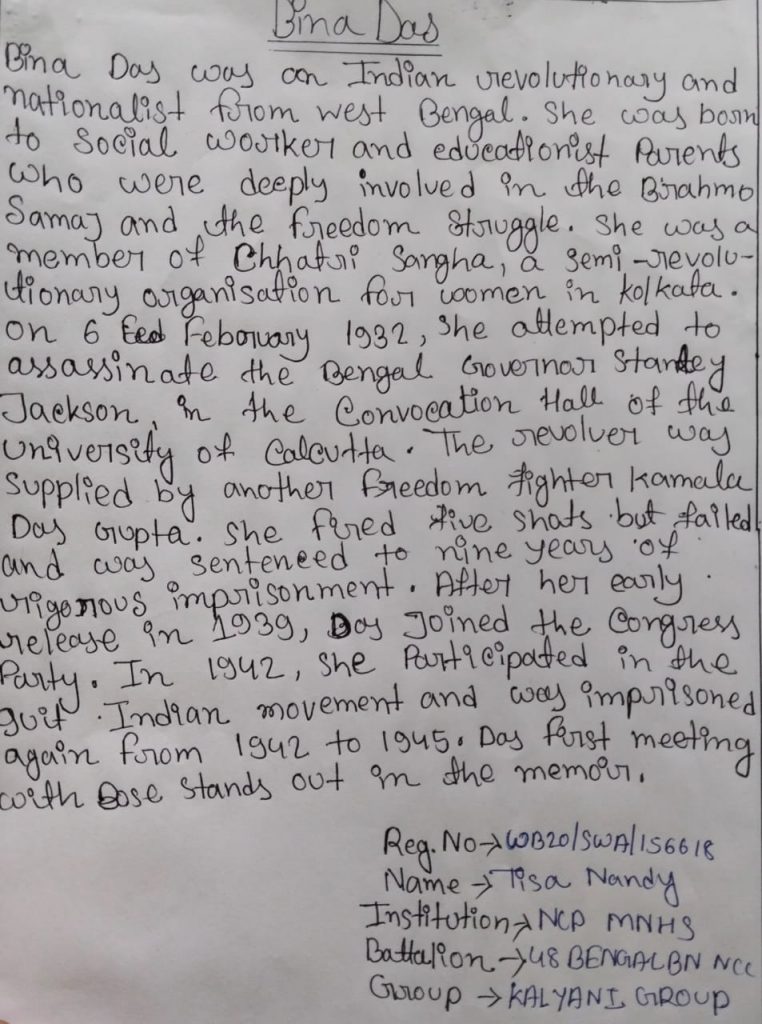 Bina Das
Bina Das was an Indian revolutionary and
nationalist from west Bengal. She was born
to Social worker and educationist Parents
who were deeply involved in the Brahmo
Samaj and the freedom Struggle. She was a
member of Chhatri Sangha, a Semi-revolu-
tionary organisation for women in kolkata.
on 6 Feboruary 1932, She attempted to
assassinate the Bengal Governor Stanley
Jackson, in the Convocation Hall of the
University of Calcutta. The revolver was
Supplied by another freedom fighter Kamala
Das Gupta. She fired five shats but failed
and was senteneed to nine years of
rigorous imprisonment. After her early
release in 1939, Das Joined the Congress
Party. In 1942, She Participated in the
guit Indian movement and was imprisoned
again from 1942 to 1945. Das first meeting
with Bose Stands out in the memoir.
Reg. No→WB20/SWA/156618
Name → Tisa Nandy
Institution→NCP MNHS
Battalion →48 BENGAL BN NCC
Group → KALYANI GROUP